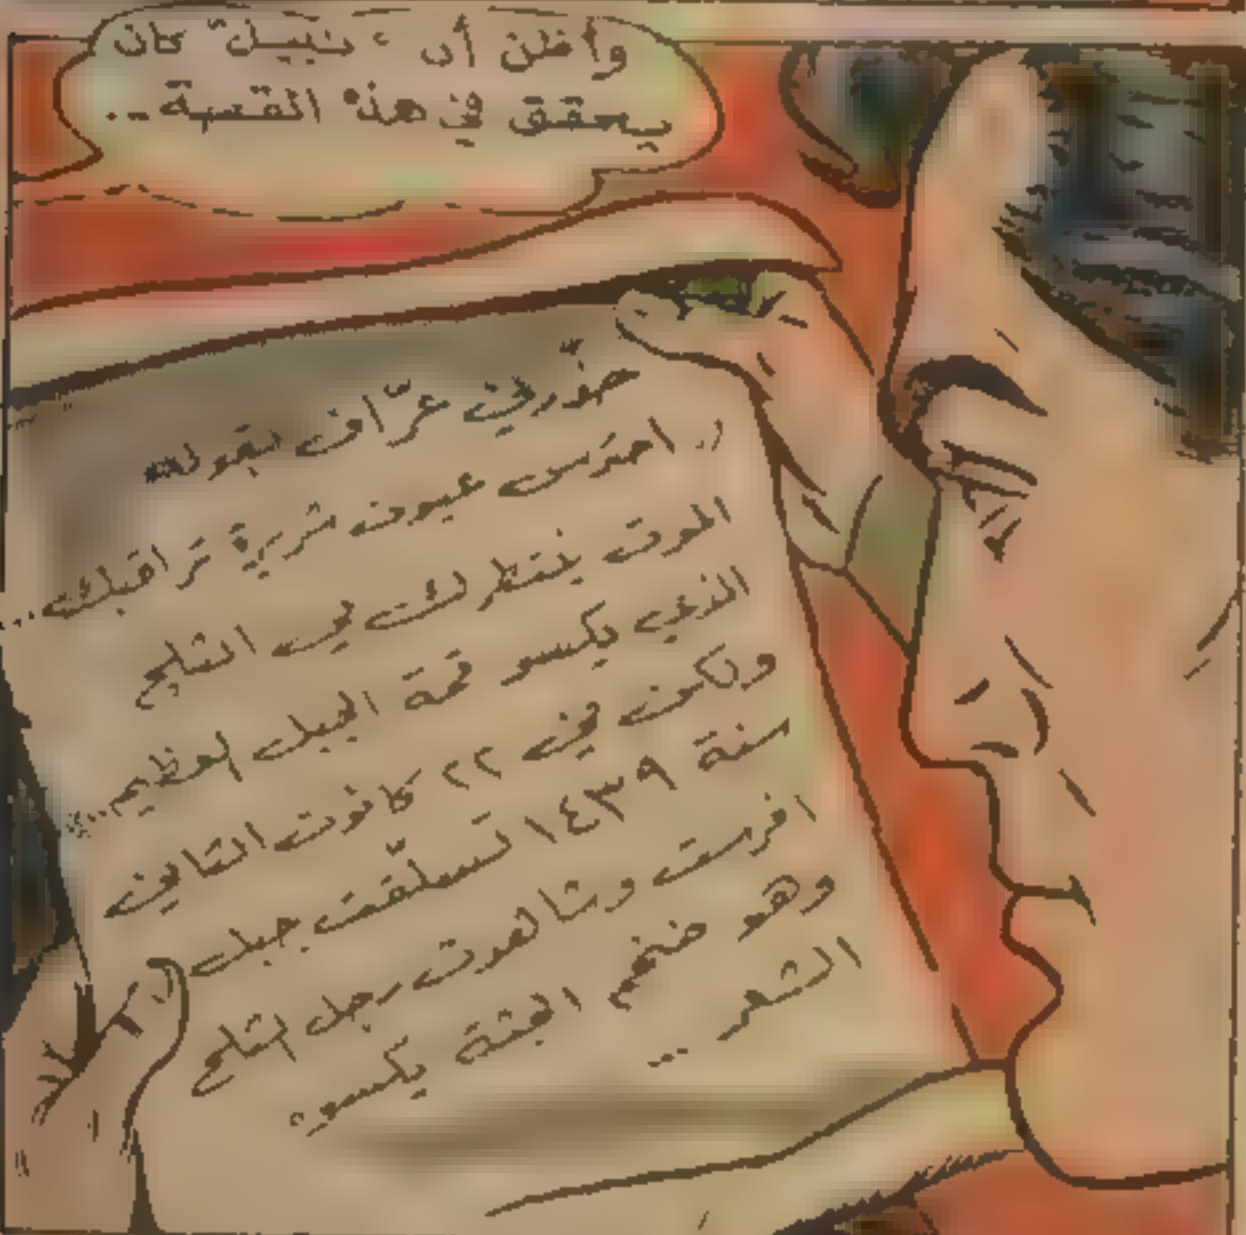 وأظن أن "نبيل" كان
يحقق في هذه القصة ..
حذّرني عرّاف بقوله
(( احترس عيون شريرة تراقبك ...
الموت ينتظرك في الثلج
الذي يكسو قمة الجبل العظيم ...
ولكن في ٢٢ كانون الثاني
سنة ١٤٣٩ تسلّقت جبل
افرست وشاهدت رجل الثلج
وهو ضخم الجثة يكسوه
الشعر ...